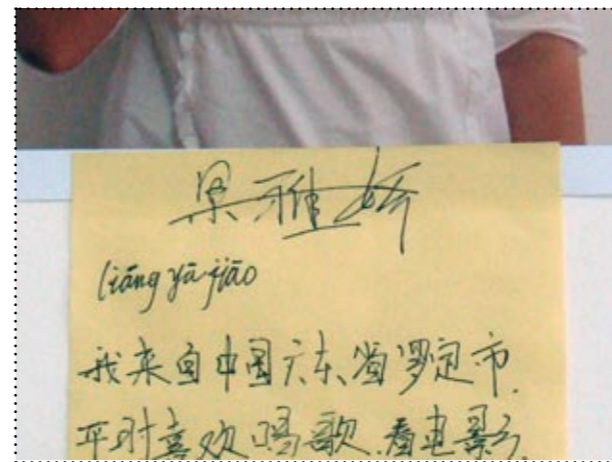 梁雅娇
liāng yǎ jiāo
我来自中国广东省罗定市.
平时喜欢唱歌.看电影.